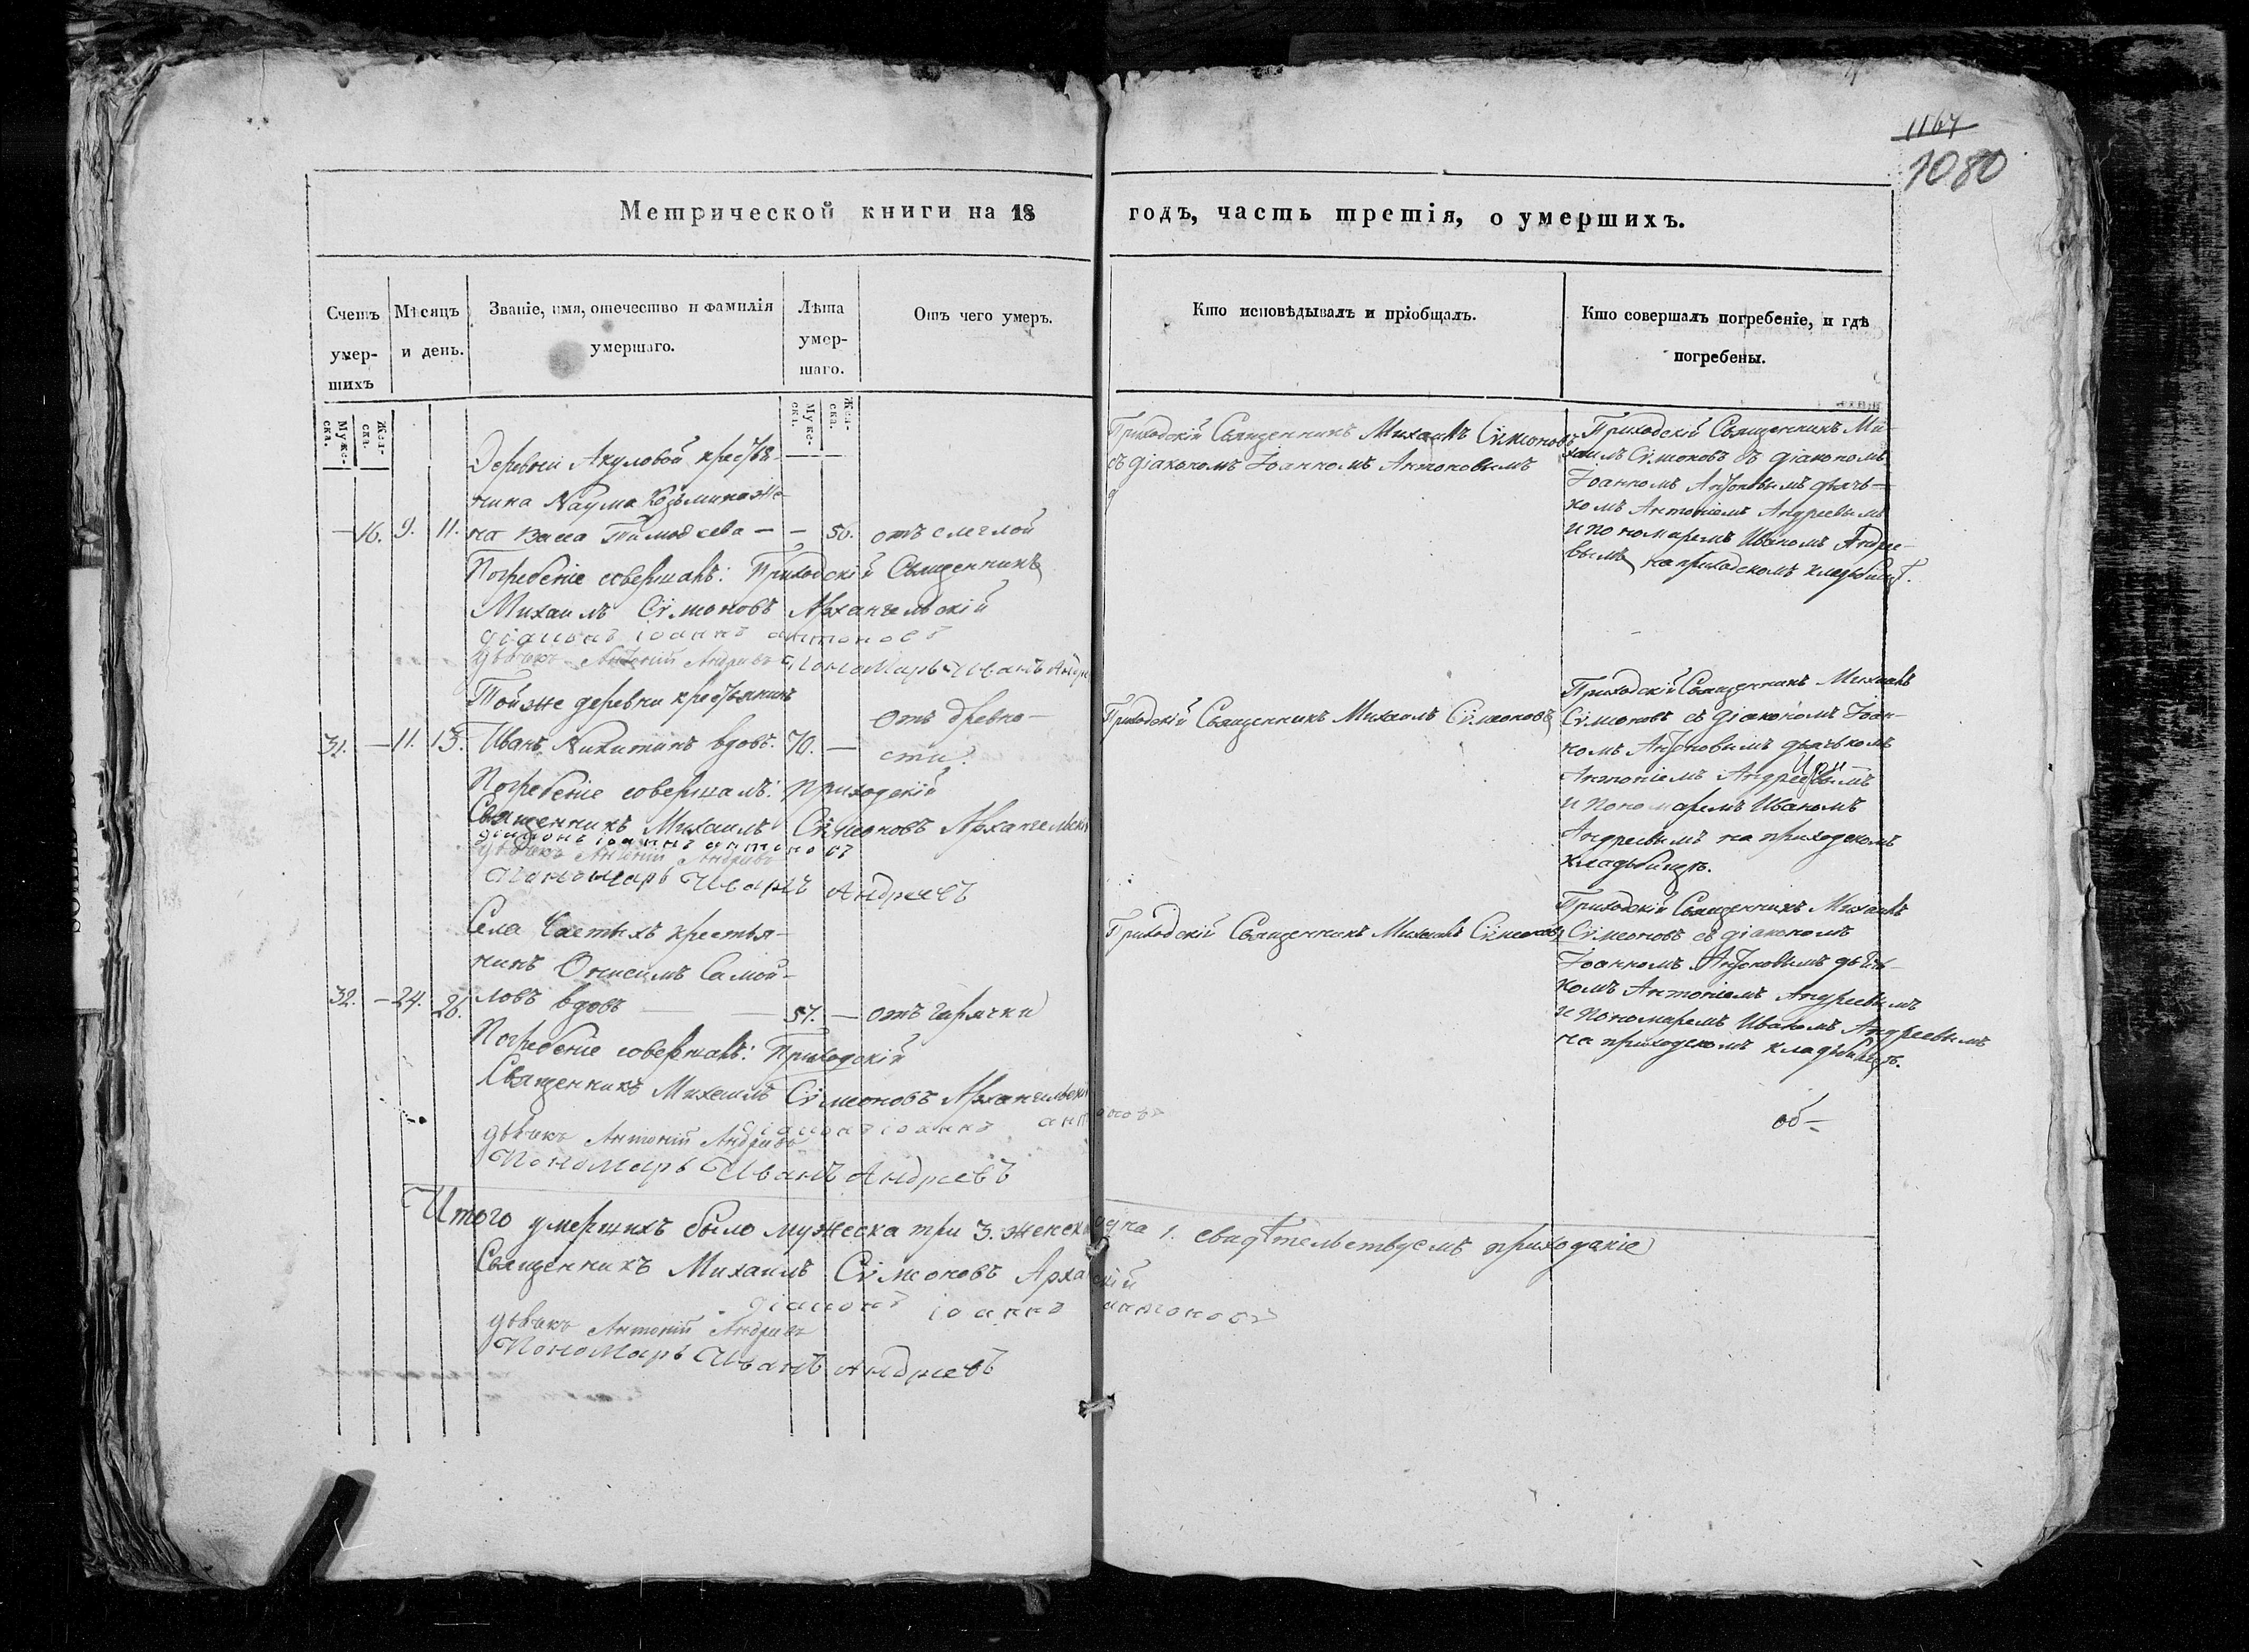 1164
1080
Метрической книги на 18 годъ, часть третія, о умершихъ.
Счетъ умер-шихъ
Мѣсяцъ и день.
Званіе, имя, отечество и фамилія умершаго.
Лѣта умер-шаго.
Отъ чего умеръ.
Кто исповѣдывалъ и пріобщалъ.
Кто совершалъ погребеніе, и гдѣ погребены.
Муже-ска.
Жен-ска.
Муже-ска.
Жен-ска.
Деревни Акуловой крестья-
нина Наума Козьмина же-
— 16. 9. 11. на Васса Тимоѳеева — — 50. отъ
Погребеніе совершалъ: Приходскій Священникъ
Михаилъ Сѵмеоновъ Архангельскій
діаконъ іоаннъ антоновъ
дьячекъ Антоній Андреевъ Пономарь Иванъ Андре
Приходскій Священникъ Михаилъ Сѵмеоновъ
съ діакономъ Іоанномъ Антоновымъ
Приходскій Священникъ Ми-
хаилъ Сѵмеоновъ съ діакономъ
Іоанномъ Антоновымъ дьячь-
комъ Антоніемъ Андреевымъ
и пономаремъ Иваномъ Андре-
вымъ на приходскомъ кладбищѣ.
Тойже деревни крестьянинъ
31. — 11. 13. Иванъ Никитинъ вдовъ. 70. — отъ древно-
сти.
Погребеніе совершалъ: Приходскій
Священникъ Михаилъ Сѵмеоновъ Архангельскій
діаконъ іоаннъ антоновъ
дьячекъ Антоній Андреевъ
Пономарь Иванъ Андреевъ
Приходскій Священникъ Михаилъ Сѵмеоновъ
Приходскій Священникъ Михаилъ
Сѵмеоновъ съ діакономъ Іоан-
номъ Антоновымъ дьячькомъ
Антоніемъ Андреевымъ
и пономаремъ Иваномъ
Андреевымъ на приходскомъ
кладбищѣ.
Села Частыхъ крестья-
нинъ Онисимъ Самой-
32. — 24. 26. ловъ вдовъ — — 57. — отъ горячки
Погребеніе совершалъ: Приходскій
Священникъ Михаилъ Сѵмеоновъ Архангельскій
діаконъ іоаннъ антоновъ
дьячекъ Антоній Андреевъ
Пономарь Иванъ Андреевъ
Приходскій Священникъ Михаилъ Сѵмеоновъ
Приходскій Священникъ Михаилъ
Сѵмеоновъ съ діакономъ
Іоанномъ Антоновымъ дьячь-
комъ Антоніемъ Андреевымъ
и пономаремъ Иваномъ Андреевымъ
на приходскомъ кладбищѣ.
об—
Итого умершихъ было мужеска три 3. женска одна 1. свидѣтельствуемъ приходскіе
Священникъ Михаилъ Сѵмеоновъ
діаконъ іоаннъ антоновъ
дьячекъ Антоній Андреевъ
Пономарь Иванъ Андреевъ